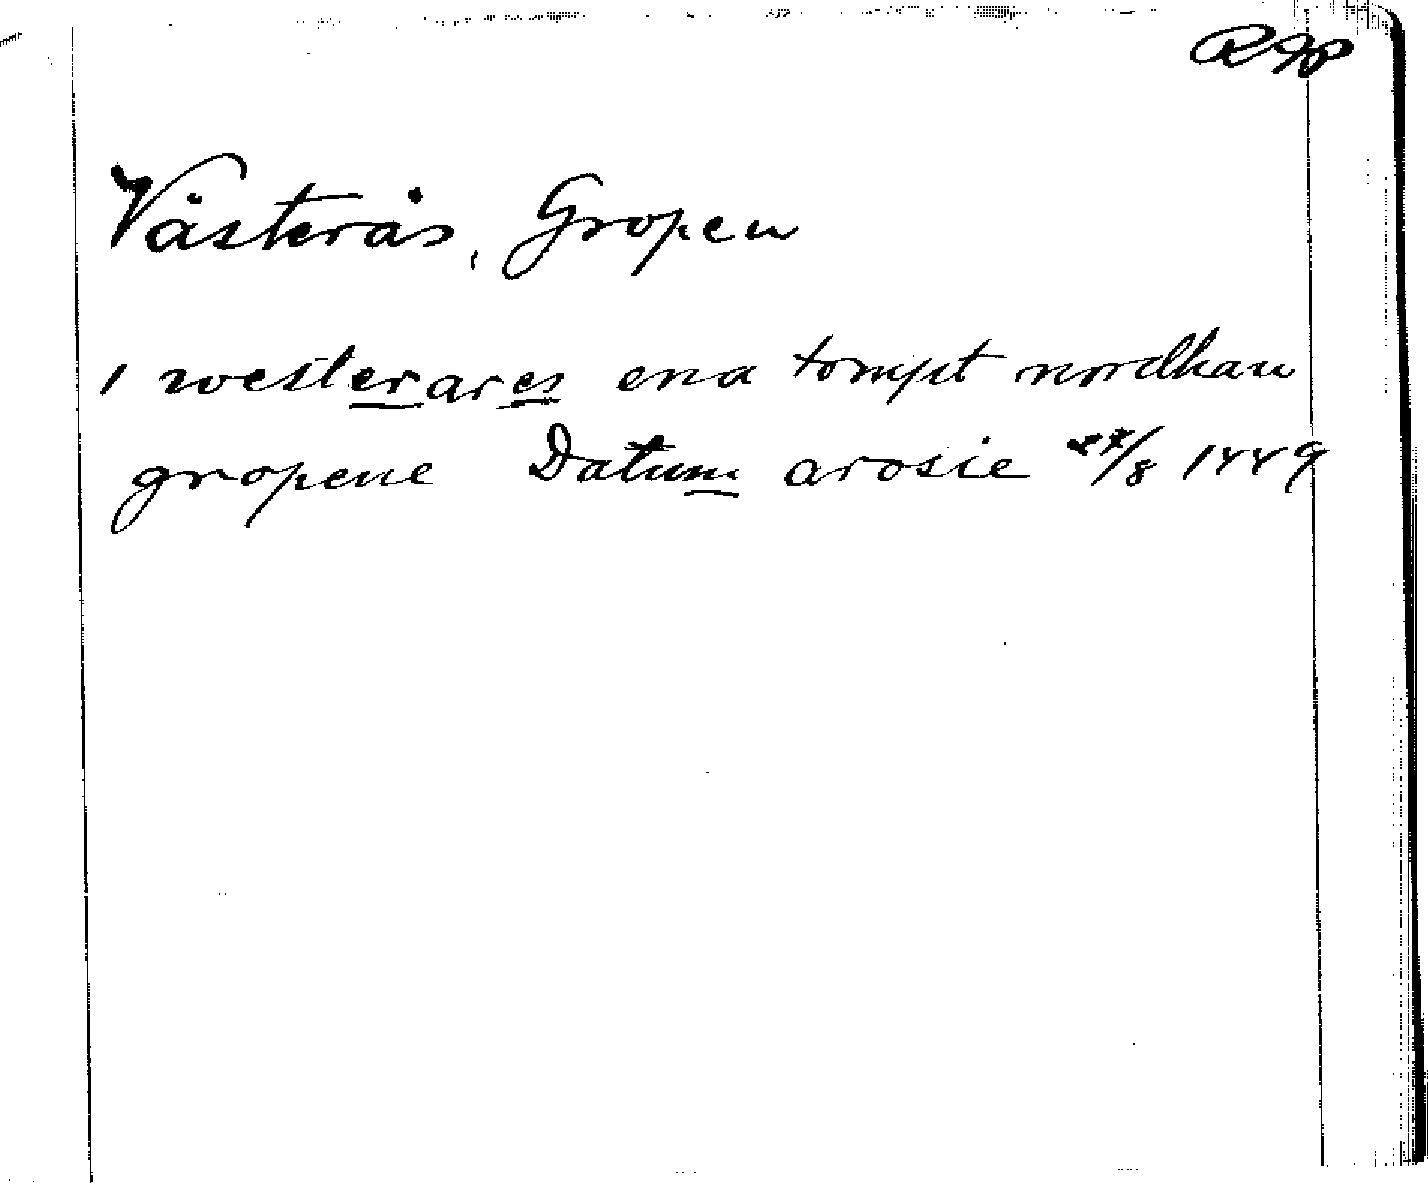 RAp
Västerås, Gropen
i westerares ena tompt nordhan
gropene Datum arosie /8 1449